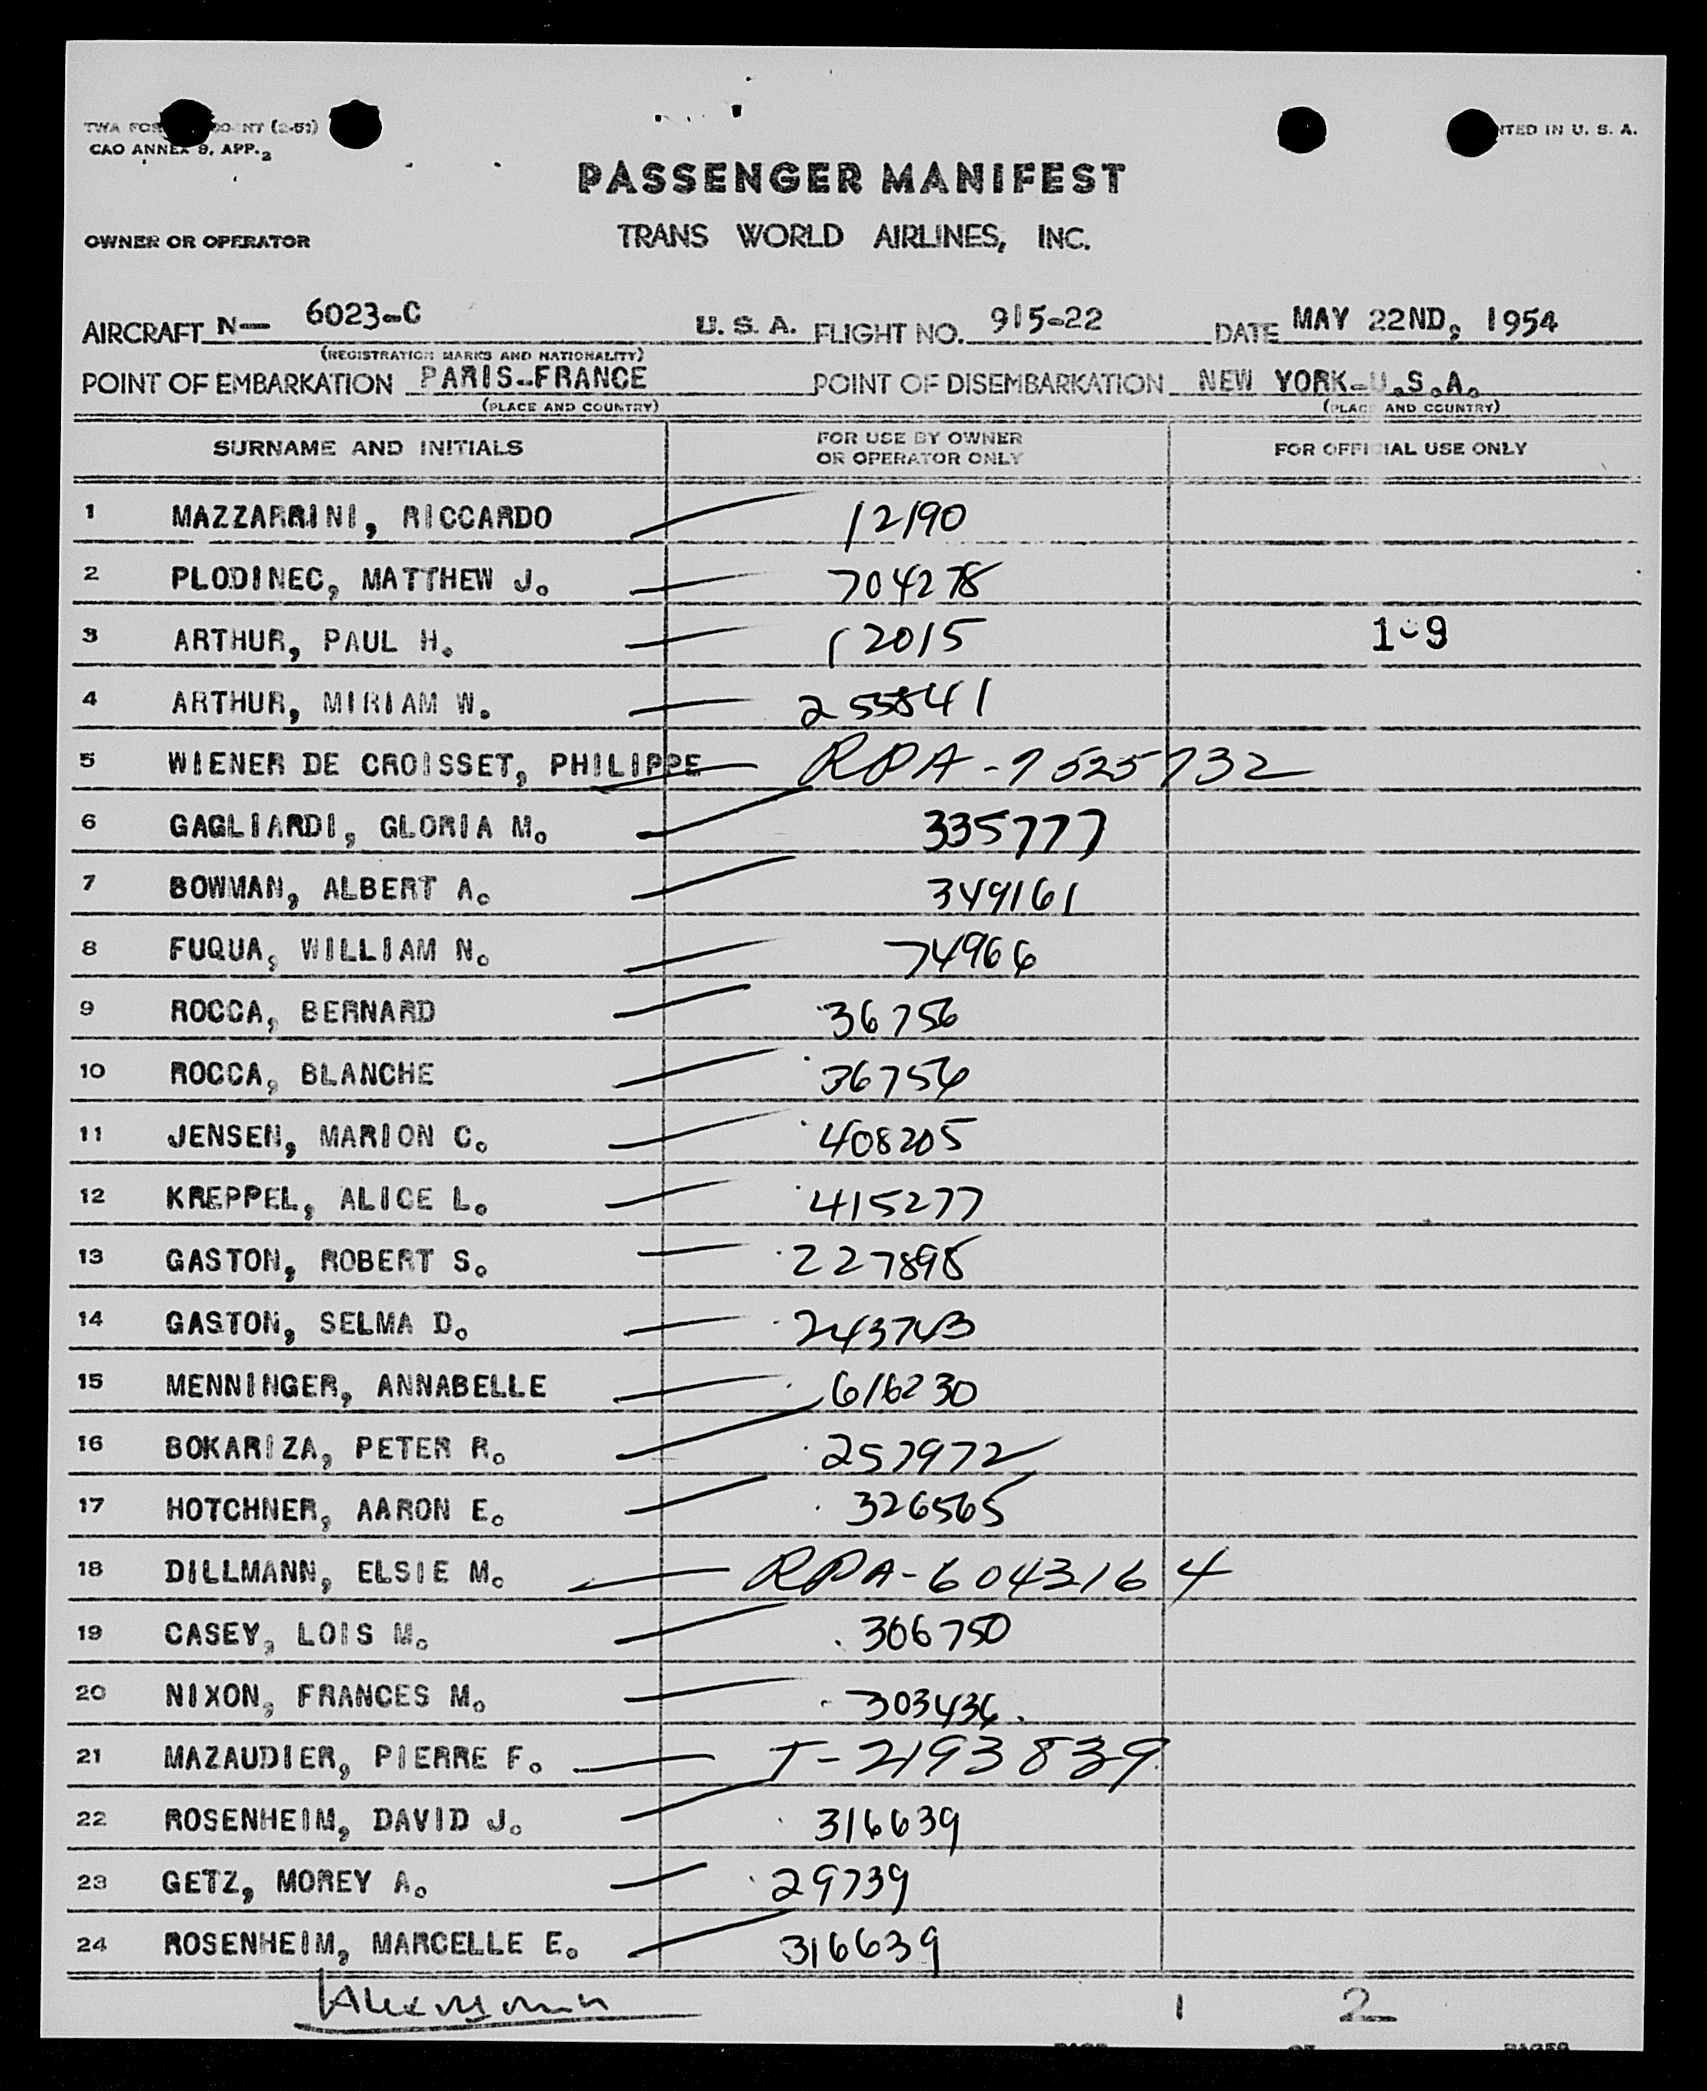 CAO ANNEX 9, APP. 2
PASSENGER MANIFEST
OWNER OR OPERATOR TRANS WORLD AIRLINES, INC.
AIRCRAFT N— 6023-C U. S. A. FLIGHT NO. 915-22 DATE MAY 22ND, 1954
(REGISTRATION MARKS AND NATIONALITY)
POINT OF EMBARKATION PARIS-FRANCE POINT OF DISEMBARKATION NEW YORK-U.S.A.
(PLACE AND COUNTRY) (PLACE AND COUNTRY)
SURNAME AND INITIALS FOR USE BY OWNER OR OPERATOR ONLY FOR OFFICIAL USE ONLY
1 MAZZARRINI, RICCARDO 12190
2 PLODINEC, MATTHEW J. 704278
3 ARTHUR, PAUL H. 12015 1-9
4 ARTHUR, MIRIAM W. 255841
5 WIENER DE CROISSET, PHILIPPE RPA-7525732
6 GAGLIARDI, GLORIA M. 335777
7 BOWMAN, ALBERT A. 349161
8 FUQUA, WILLIAM N. 74966
9 ROCCA, BERNARD 36756
10 ROCCA, BLANCHE 36756
11 JENSEN, MARION C. 408205
12 KREPPEL, ALICE L. 415277
13 GASTON, ROBERT S. 227898
14 GASTON, SELMA D. 243743
15 MENNINGER, ANNABELLE 616230
16 BOKARIZA, PETER R. 257972
17 HOTCHNER, AARON E. 326565
18 DILLMANN, ELSIE M. RPA-6043164
19 CASEY, LOIS M. 306750
20 NIXON, FRANCES M. 303436
21 MAZAUDIER, PIERRE F. T-2193839
22 ROSENHEIM, DAVID J. 316639
23 GETZ, MOREY A. 29739
24 ROSENHEIM, MARCELLE E. 316639
1 2